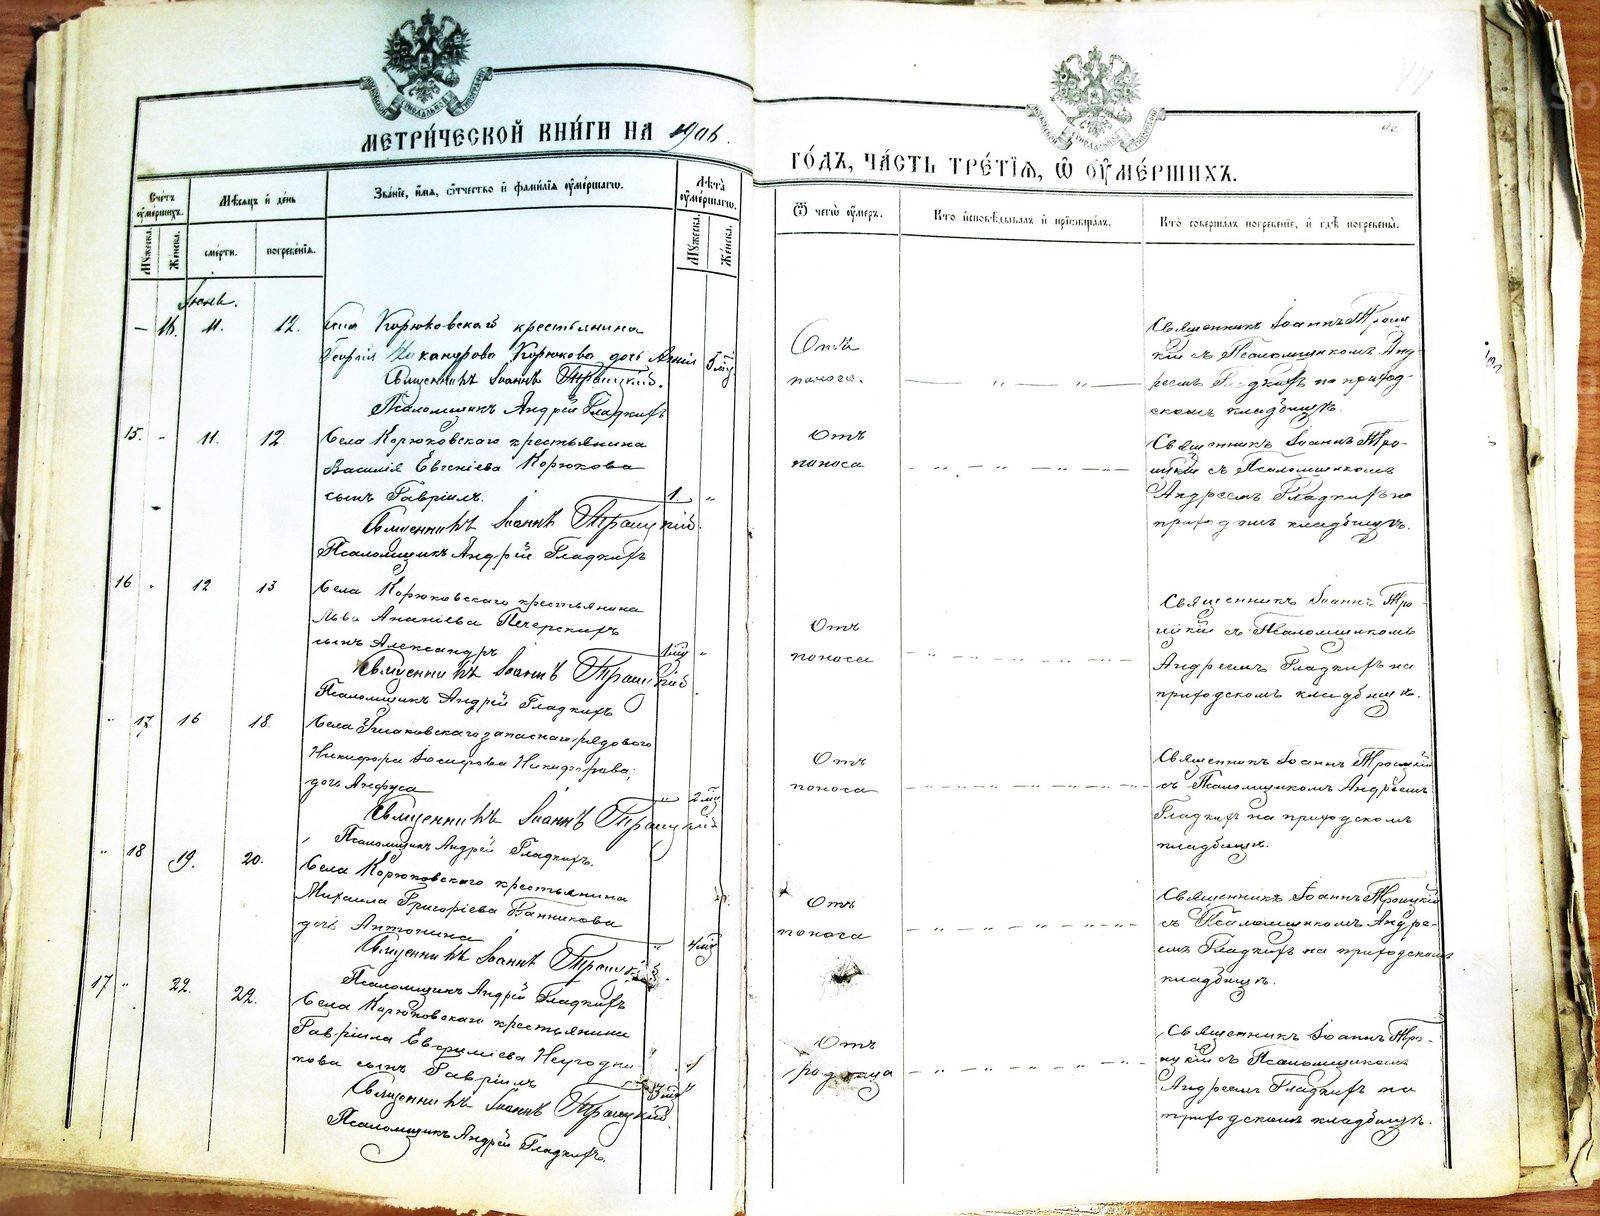 МЕТРИ́ЧЕСКОЙ КНИ́ГИ НА 1906.
ГО́ДЪ, ЧА́СТЬ ТРЕ́ТІЯ, Ѿ ОУМЕ́РШИХЪ.
Счетъ оумершихъ.
Мужеска.
Женска.
Мѣсяцъ и день
смерти.
погребенія.
Званіе, имя, отчество и фамилія оумершагѡ.
Лѣта оумершагѡ.
Мужеска.
Женска.
Ѿ чегѡ оумеръ.
Кто исповѣдывалъ и пріобщалъ.
Кто совершалъ погребеніе, и гдѣ погребены.
Іюнь.
— 16. 11. 12.
Села Корюковскаго крестьянина
Георгія Никандрова Корюкова дочь Агнія 5 мц
Священникъ Іоаннъ Троицкій.
Псаломщикъ Андрей Гладкихъ
Отъ
поноса.
Священникъ Іоаннъ Троиц
кій съ Псаломщикомъ Анд-
реемъ Гладкихъ на приход-
скомъ кладбищѣ.
15. „ 11. 12.
Села Корюковскаго крестьянина
Василія Евгеніева Корюкова
сынъ Гавріилъ. 1. „
Священникъ Іоаннъ Троицкій.
Псаломщикъ Андрей Гладкихъ
Отъ
поноса
Священникъ Іоаннъ Тро-
ицкій съ Псаломщикомъ
Андреемъ Гладкихъ на
приходскомъ кладбищѣ.
16 „ 12 13
Села Корюковскаго крестьянина
Льва Ананіева Печерскихъ
сынъ Александръ „
Священникъ Іоаннъ Троицкій
Псаломщикъ Андрей Гладкихъ
Отъ
поноса
Священникъ Іоаннъ Тро-
ицкій съ Псаломщикомъ
Андреемъ Гладкихъ на
приходскомъ кладбищѣ.
„ 17 16 18.
Села запаснаго рядового
Никифора Іосифова Никифорова;
дочь Анфуса „ 2 мц
Священникъ Іоаннъ Троицкій
Псаломщикъ Андрей Гладкихъ.
Отъ
поноса
Священникъ Іоаннъ Троицкій
съ Псаломщикомъ Андреемъ
Гладкихъ на приходскомъ
кладбищѣ.
„ 18 19. 20.
Села Корюковскаго крестьянина
Михаила Григоріева Банникова
дочь Антонина „ 4 мц
Священникъ Іоаннъ Троицкій.
Псаломщикъ Андрей Гладкихъ
Отъ
поноса
Священникъ Іоаннъ Троицкій
съ Псаломщикомъ Андре-
емъ Гладкихъ на приходскомъ
кладбищѣ.
17 „ 22. 22.
Села Корюковскаго крестьянина
Гавріила Евфиміева Неугодни
кова сынъ Гавріилъ
Священникъ Іоаннъ Троицкій.
Псаломщикъ Андрей Гладкихъ.
Отъ
родимца
Священникъ Іоаннъ Тро-
ицкій съ Псаломщикомъ
Андреемъ Гладкихъ на
приходскомъ кладбищѣ.